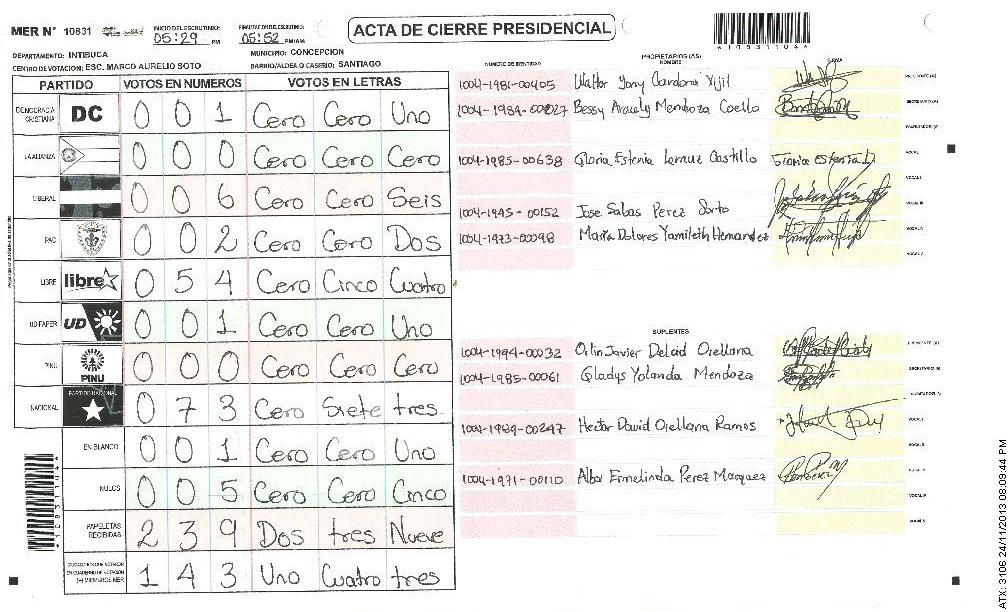 MER N° 10631
INICIO DEL ESCRUTINIO:
05:29 PM
FINALIZACION DEL ESCRUTINIO:
05:52 PM/AM
ACTA DE CIERRE PRESIDENCIAL
DEPARTAMENTO: INTIBUCA
MUNICIPIO: CONCEPCION
CENTRO DE VOTACION: ESC. MARCO AURELIO SOTO
BARRIO/ALDEA O CASERIO: SANTIAGO
PARTIDO VOTOS EN NUMEROS VOTOS EN LETRAS
DEMOCRACIA CRISTIANA DC 0 0 1 Cero Cero Uno
LA ALIANZA 0 0 0 Cero Cero Cero
LIBERAL 0 0 6 Cero Cero Seis
PAC 0 0 2 Cero Cero Dos
LIBRE libre 0 5 4 Cero Cinco Cuatro
UD-FAPER UD 0 0 1 Cero Cero Uno
PINU PINU 0 0 0 Cero Cero Cero
NACIONAL PARTIDO NACIONAL 0 7 3 Cero Siete tres
EN BLANCO 0 0 1 Cero Cero Uno
NULOS 0 0 5 Cero Cero Cinco
PAPELETAS RECIBIDAS 2 3 9 Dos tres Nueve
CIUDADANOS QUE VOTARON EN CUADERNO DE VOTACION (+) MIEMBROS MER 1 4 3 Uno Cuatro tres
NUMERO DE IDENTIDAD
PROPIETARIOS (AS)
NOMBRE
FIRMA
1004-1981-00405 Walter Jony Cardona Vijil
1004-1984-00027 Bessy Aracely Mendoza Coello SECRETARIO (A)
1004-1985-00638 Gloria Estenia Lemuz Castillo VOCAL I
VOCAL II
1004-1945-00152 Jose Sabas Perez Sorto VOCAL III
1004-1973-00098 Maria Dolores Yamileth Hernandez VOCAL IV
VOCAL V
SUPLENTES
1004-1994-00032 Orlin Javier Delcid Orellana
1004-1985-00061 Gladys Yolanda Mendoza SECRETARIO (A)
1004-1989-00247 Hector David Orellana Ramos VOCAL I
VOCAL II
1004-1971-00110 Alba Ermelinda Perez Marquez VOCAL III
VOCAL IV
VOCAL V
ATX: 3106 24/11/2013 08:09:44 PM